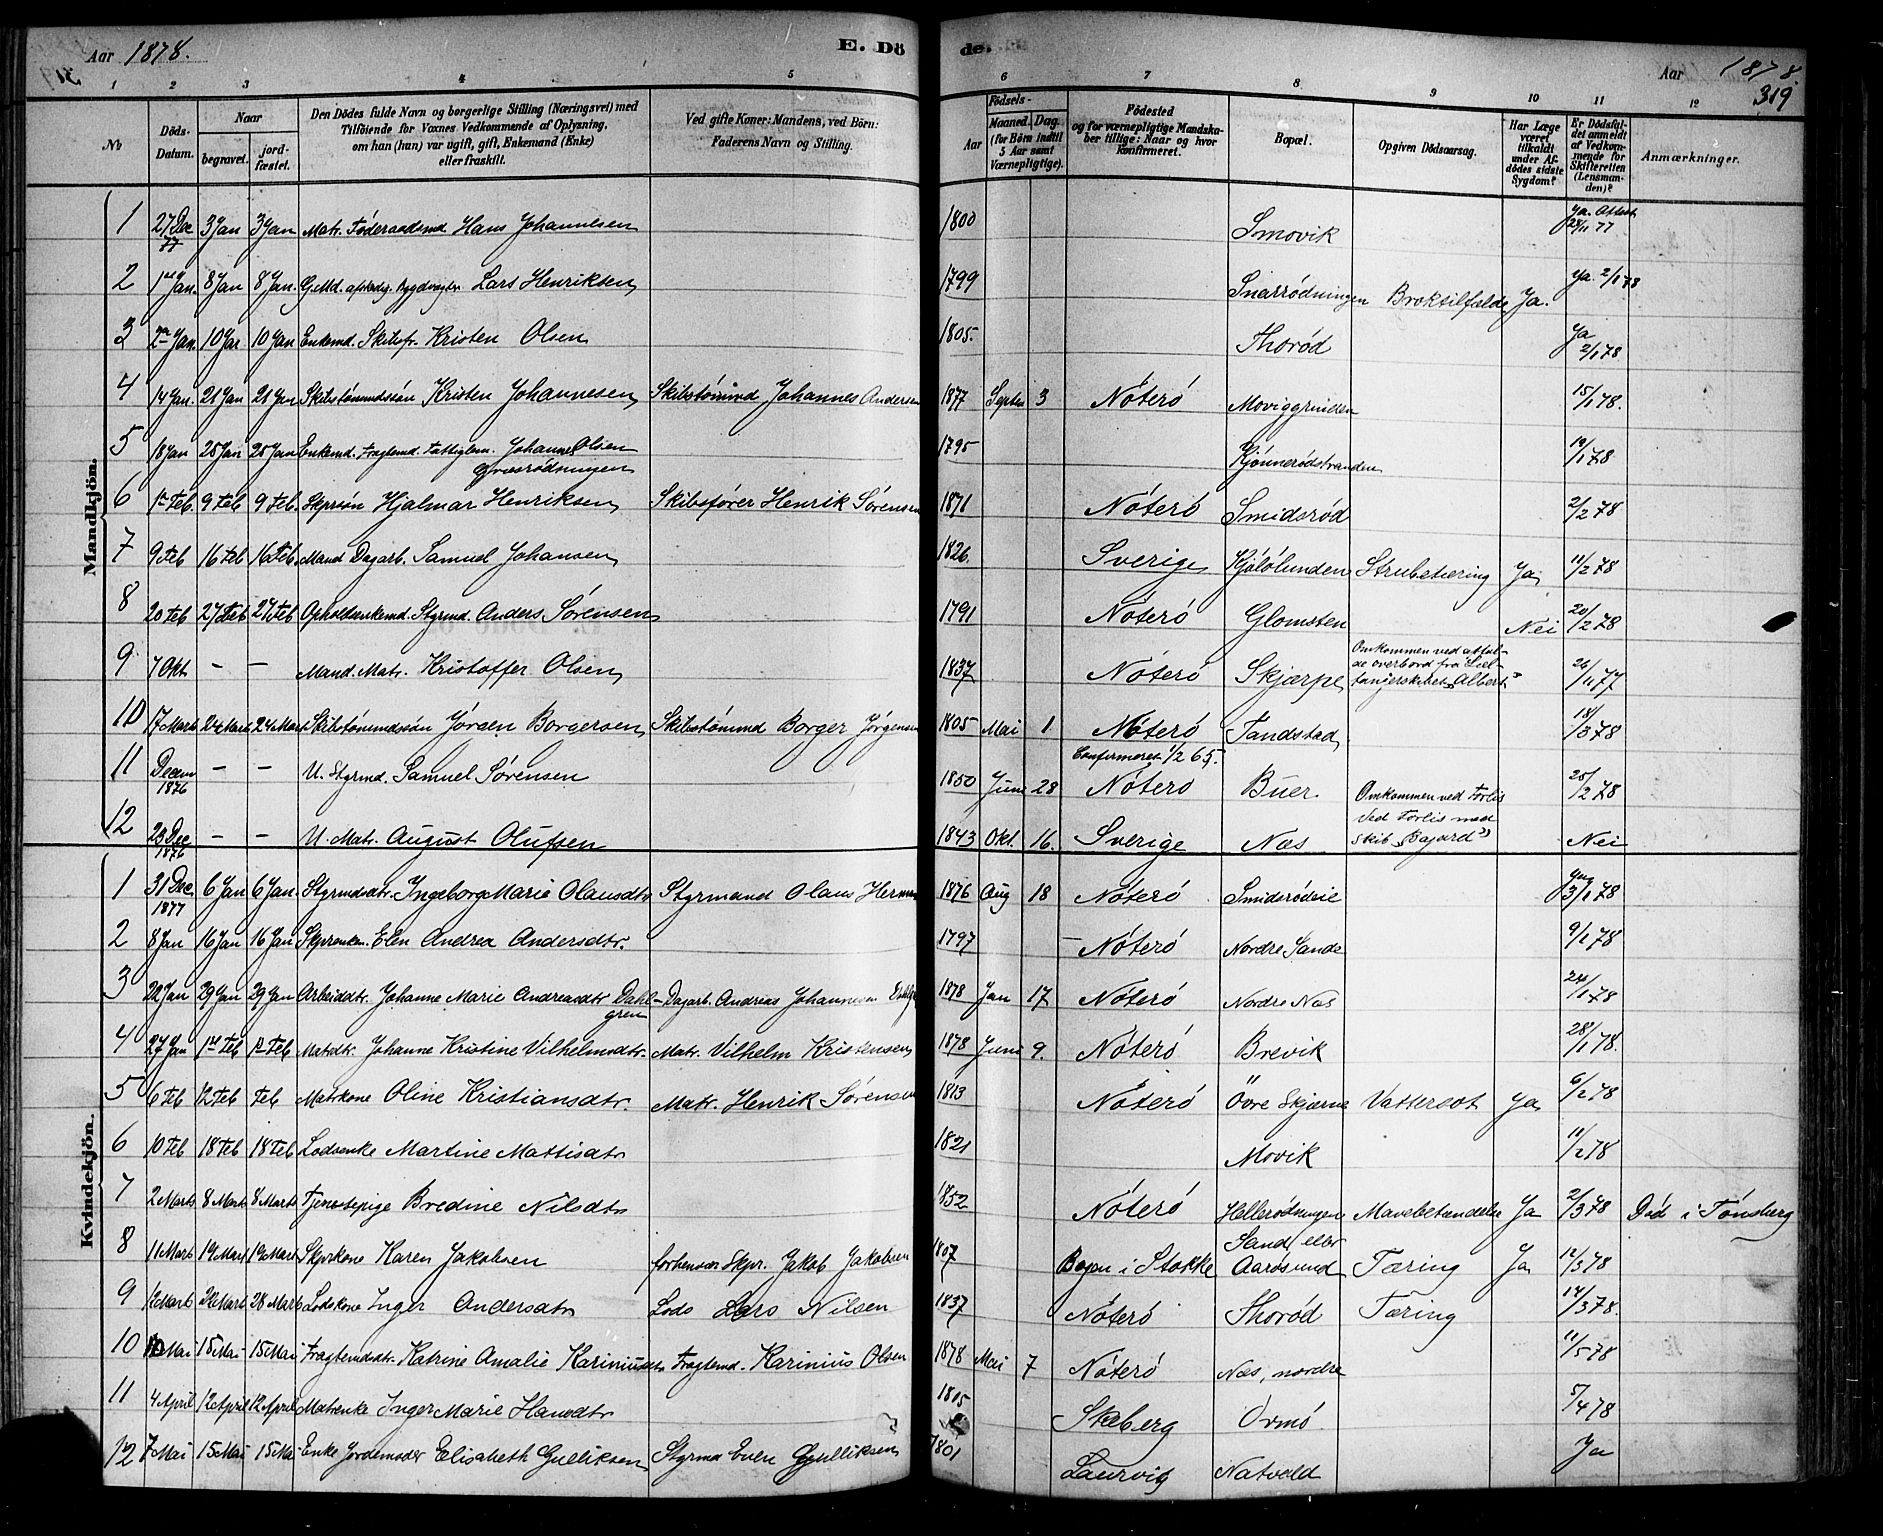 Aar 1878.
E. Dö
de.
Aar 1878.
319
1 2 3 4 5 6 7 8 9 10 11 12
No
Döds-Datum.
Naar
begravet.
jordfæstet.
Den Dödes fulde Navn og borgerlige Stilling (Næringsvei) med Tilföiende for Voxnes Vedkommende af Oplysning, om han (hun) var ugift, gift, Enkemand (Enke) eller fraskilt.
Ved gifte Koner: Mandens, ved Börn: Faderens Navn og Stilling.
Födsels-
Aar
Maaned.
Dag.
(for Börn indtil 5 Aar samt Værnepligtige).
Födested og for værnepligtige Mandskaber tillige: Naar og hvor konfirmeret.
Bopæl.
Opgiven Dödsaarsag.
Har Læge været tilkaldt under Afdödes sidste Sygdom?
Er Dödsfaldet anmeldt af Vedkommende for Skifteretten (Lensmanden)?
Anmærkninger.
Mandkjön.
1 27 Dec 77 3 Jan 3 Jan Matr. Föderaadsmd Hans Johannesen 1800 Smovik Ja. Attest 28/11 77
2 1ste Jan. 8 Jan 8 Jan. G.Md. Lars Henriksen 1799 Snarrödningen Broktilfælde Ja. Ja. 2/1 78
3 2den Jan. 10 Jan 10 Jan Enkemd. Skibsfr. Kristen Olsen 1805. Thoröd Ja 2/1 78
4 14 Jan. 21 Jan 21 Jan Skibstömmdssön Kristen Johannesen Skibstömmd Johannes Andersen 1877 Septbr 3 Nöterö Moviggrinden 15/1 78.
5 18 Jan 25 Jan 25 Jan Enkemd. Fragtemd. Fattiglem. Johannes Olsen Græsrödningen 1795 Kjönnerödstranden 19/1 78
6 1ste Feb. 9 Feb 9 Feb. Skprsön Hjalmar Henriksen Skibsförer Henrik Sörensen 1871 Nöterö Smidsröd 2/2 78
7 9 Feb 16 Feb 16 Feb. Mand Dagarb. Samuel Johansen 1826. Sverige Kjölölunden Strubetæring Ja 11/2 78
8 20 Feb 27 Feb 27 Feb Opholdsenkemd. Styrmd. Anders Sörensen 1791 Nöterö Glomsten Nei 20/2 78
9 7 Okt – – Mand. Matr. Kristoffer Olsen 1837 Nöterö Skjærpe Omkommen ved at falde overbord fra Sælfangerskibet „Albert" 26/11 77
10 17 Marts 24 Marts 24 Marts Skibstömmdssön Jörgen Borgersen Skibstömmd Borger Jörgensen 1805 Mai 1. Nöterö Tandstad 18/3 78
11 Decem 1876 – – U. Styrmd. Samuel Sörensen 1850 Juni 28 Confirmeret 1/2 65. Nöterö Buer. Omkommen ved Forlis 25/2 78
12 23 Dec 1876 – – U. Matr. August Olufsen 1843 Okt. 16. Sverige Næs ved Forlis med Skib „Bajard" Nei
Kvindekjön.
1 31 Dec 1877 6 Jan 6 Jan. Styrmdsdtr. Ingeborg Marie Olausdtr Styrmand Olaus Herman 1876 Aug 18 Nöterö Smidsrödeie Ja 3/1 78
2 8 Jan 16 Jan 16 Jan Skprenken. Elen Andrea Andersdtr. 1797 – Nöterö Nordre Sande 9/1 78
3 22 Jan 29 Jan 29 Jan Arbeiddtr. Johanne Marie Andreasdtr Dahlgren Dagarb. Andreas Johannesen 1878 Jan 17 Nöterö Nordre Næs 24/1 78
4 27 Jan 1ste Feb 1ste Feb Matrsdtr. Johanne Kristine Vilhelmsdtr. Matr. Vilhelm Kristensen 1878 Juni 9. Nöterö Brevik 28/1 78.
5 6 Feb 12 Feb Feb Matrkone Oline Kristiansdtr. Matr. Henrik Sörensen 1813 Nöterö Övre Skjærpe Vattersot Ja 6/2 78
6 10 Feb 18 Feb 18 Feb Lodsenke Martine Mattisdtr 1821 Movik 11/2 78
7 2 Marts 8 Marts 8 Marts Tjenestepige Bredine Nilsdtr 1852 Nöterö Hellerödningen Mavebetændelse Ja 2/3 78 Död i Tönsberg
8 11 Marts 19 Marts 19 Marts Skprkone Karen Jakobsen forhenvær Skpr. Jakob Jakobsen 1807 Bogen i Stokke Sand, eller Aarösund Tæring Ja 12/3 78
9 12 Marts 22 Marts 28 Marts Lodskone Inger Andersdtr Lods Lars Nilsen 1837 Nöterö Thoröd Tæring 14/3 78.
10 10 Mai 15 Mai 15 Mai Fragtemdsdtr. Katrine Amalie Kariniusdtr Fragtemd. Karinius Olsen 1878 Mai 7 Nöterö Næs, nordre 11/5 78
11 4 April 12 April 12 April Matrenke Inger Marie Hansdtr 1805 Skeberg Ormö 5/4 78
12 7 Mai 15 Mai 15 Mai Enke Jordemoder Elisabeth Gulliksen Styrmd Even Gulliksen 1801 Laurvig Natvald Ja